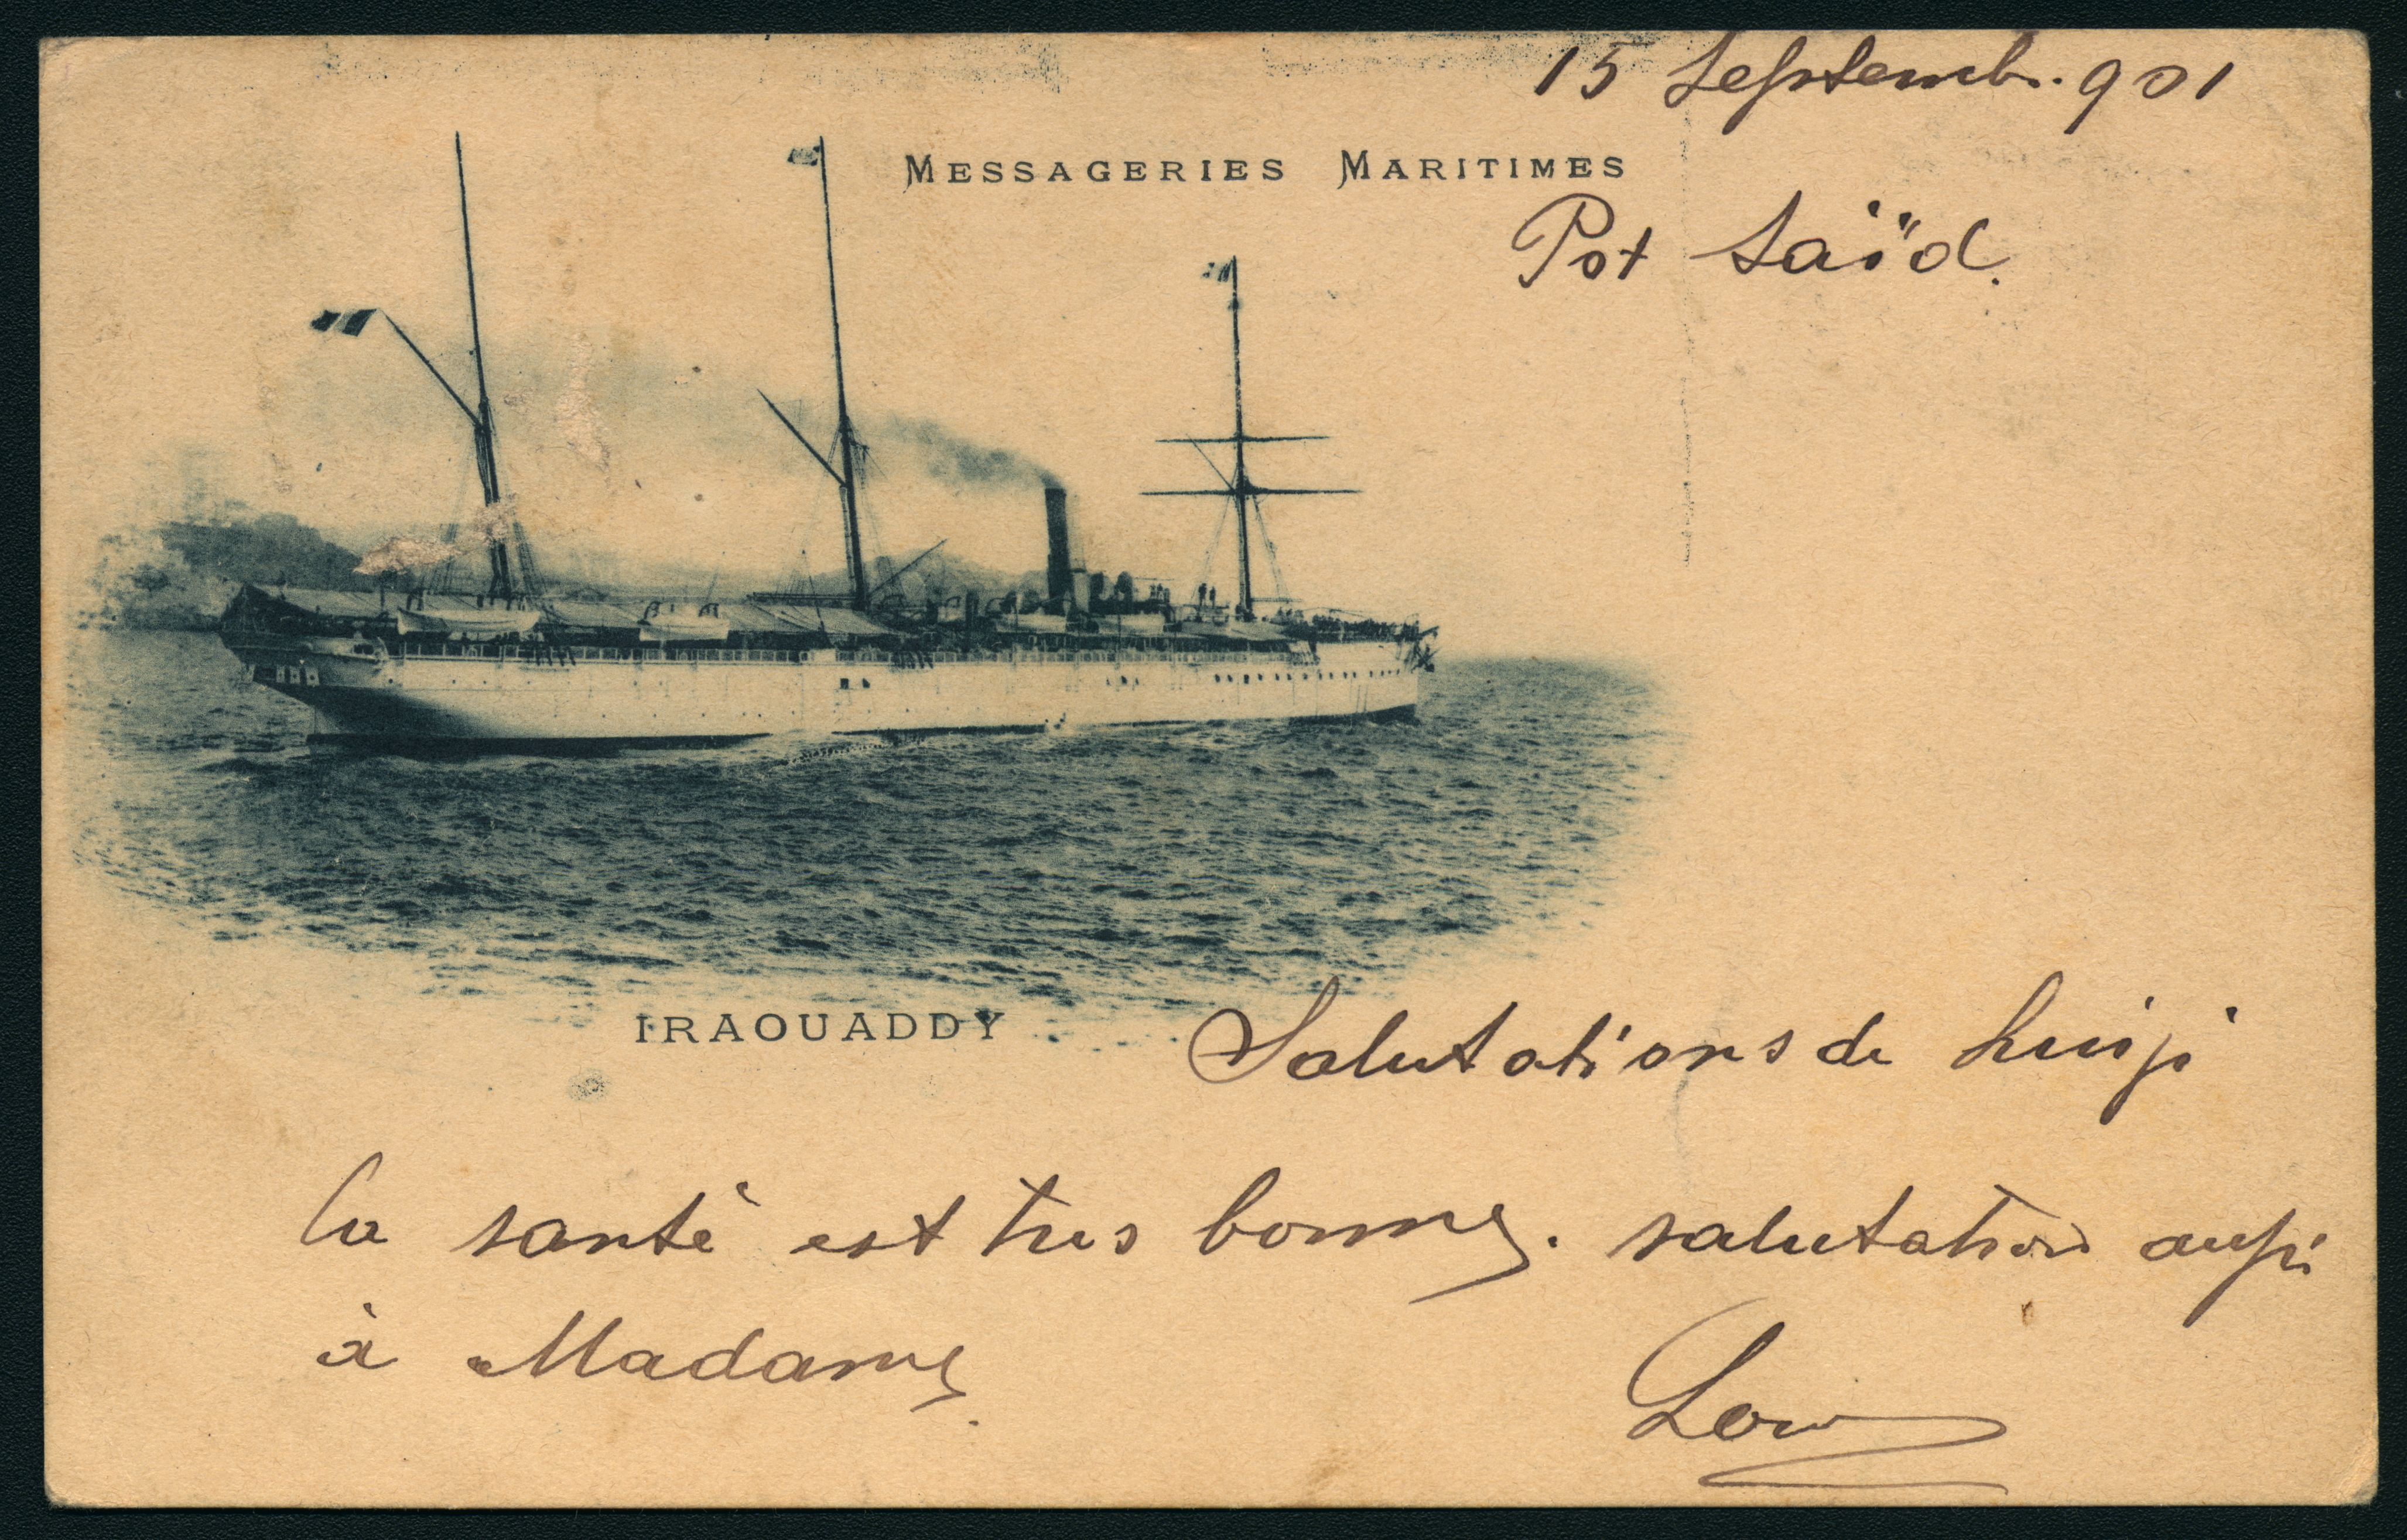 15 Septemb. 901
MESSAGERIES MARITIMES
Pot Saïd.
IRAOUADDY
Salutations de Luigi
la santé est tres bonne. salutation aussi
à Madame.